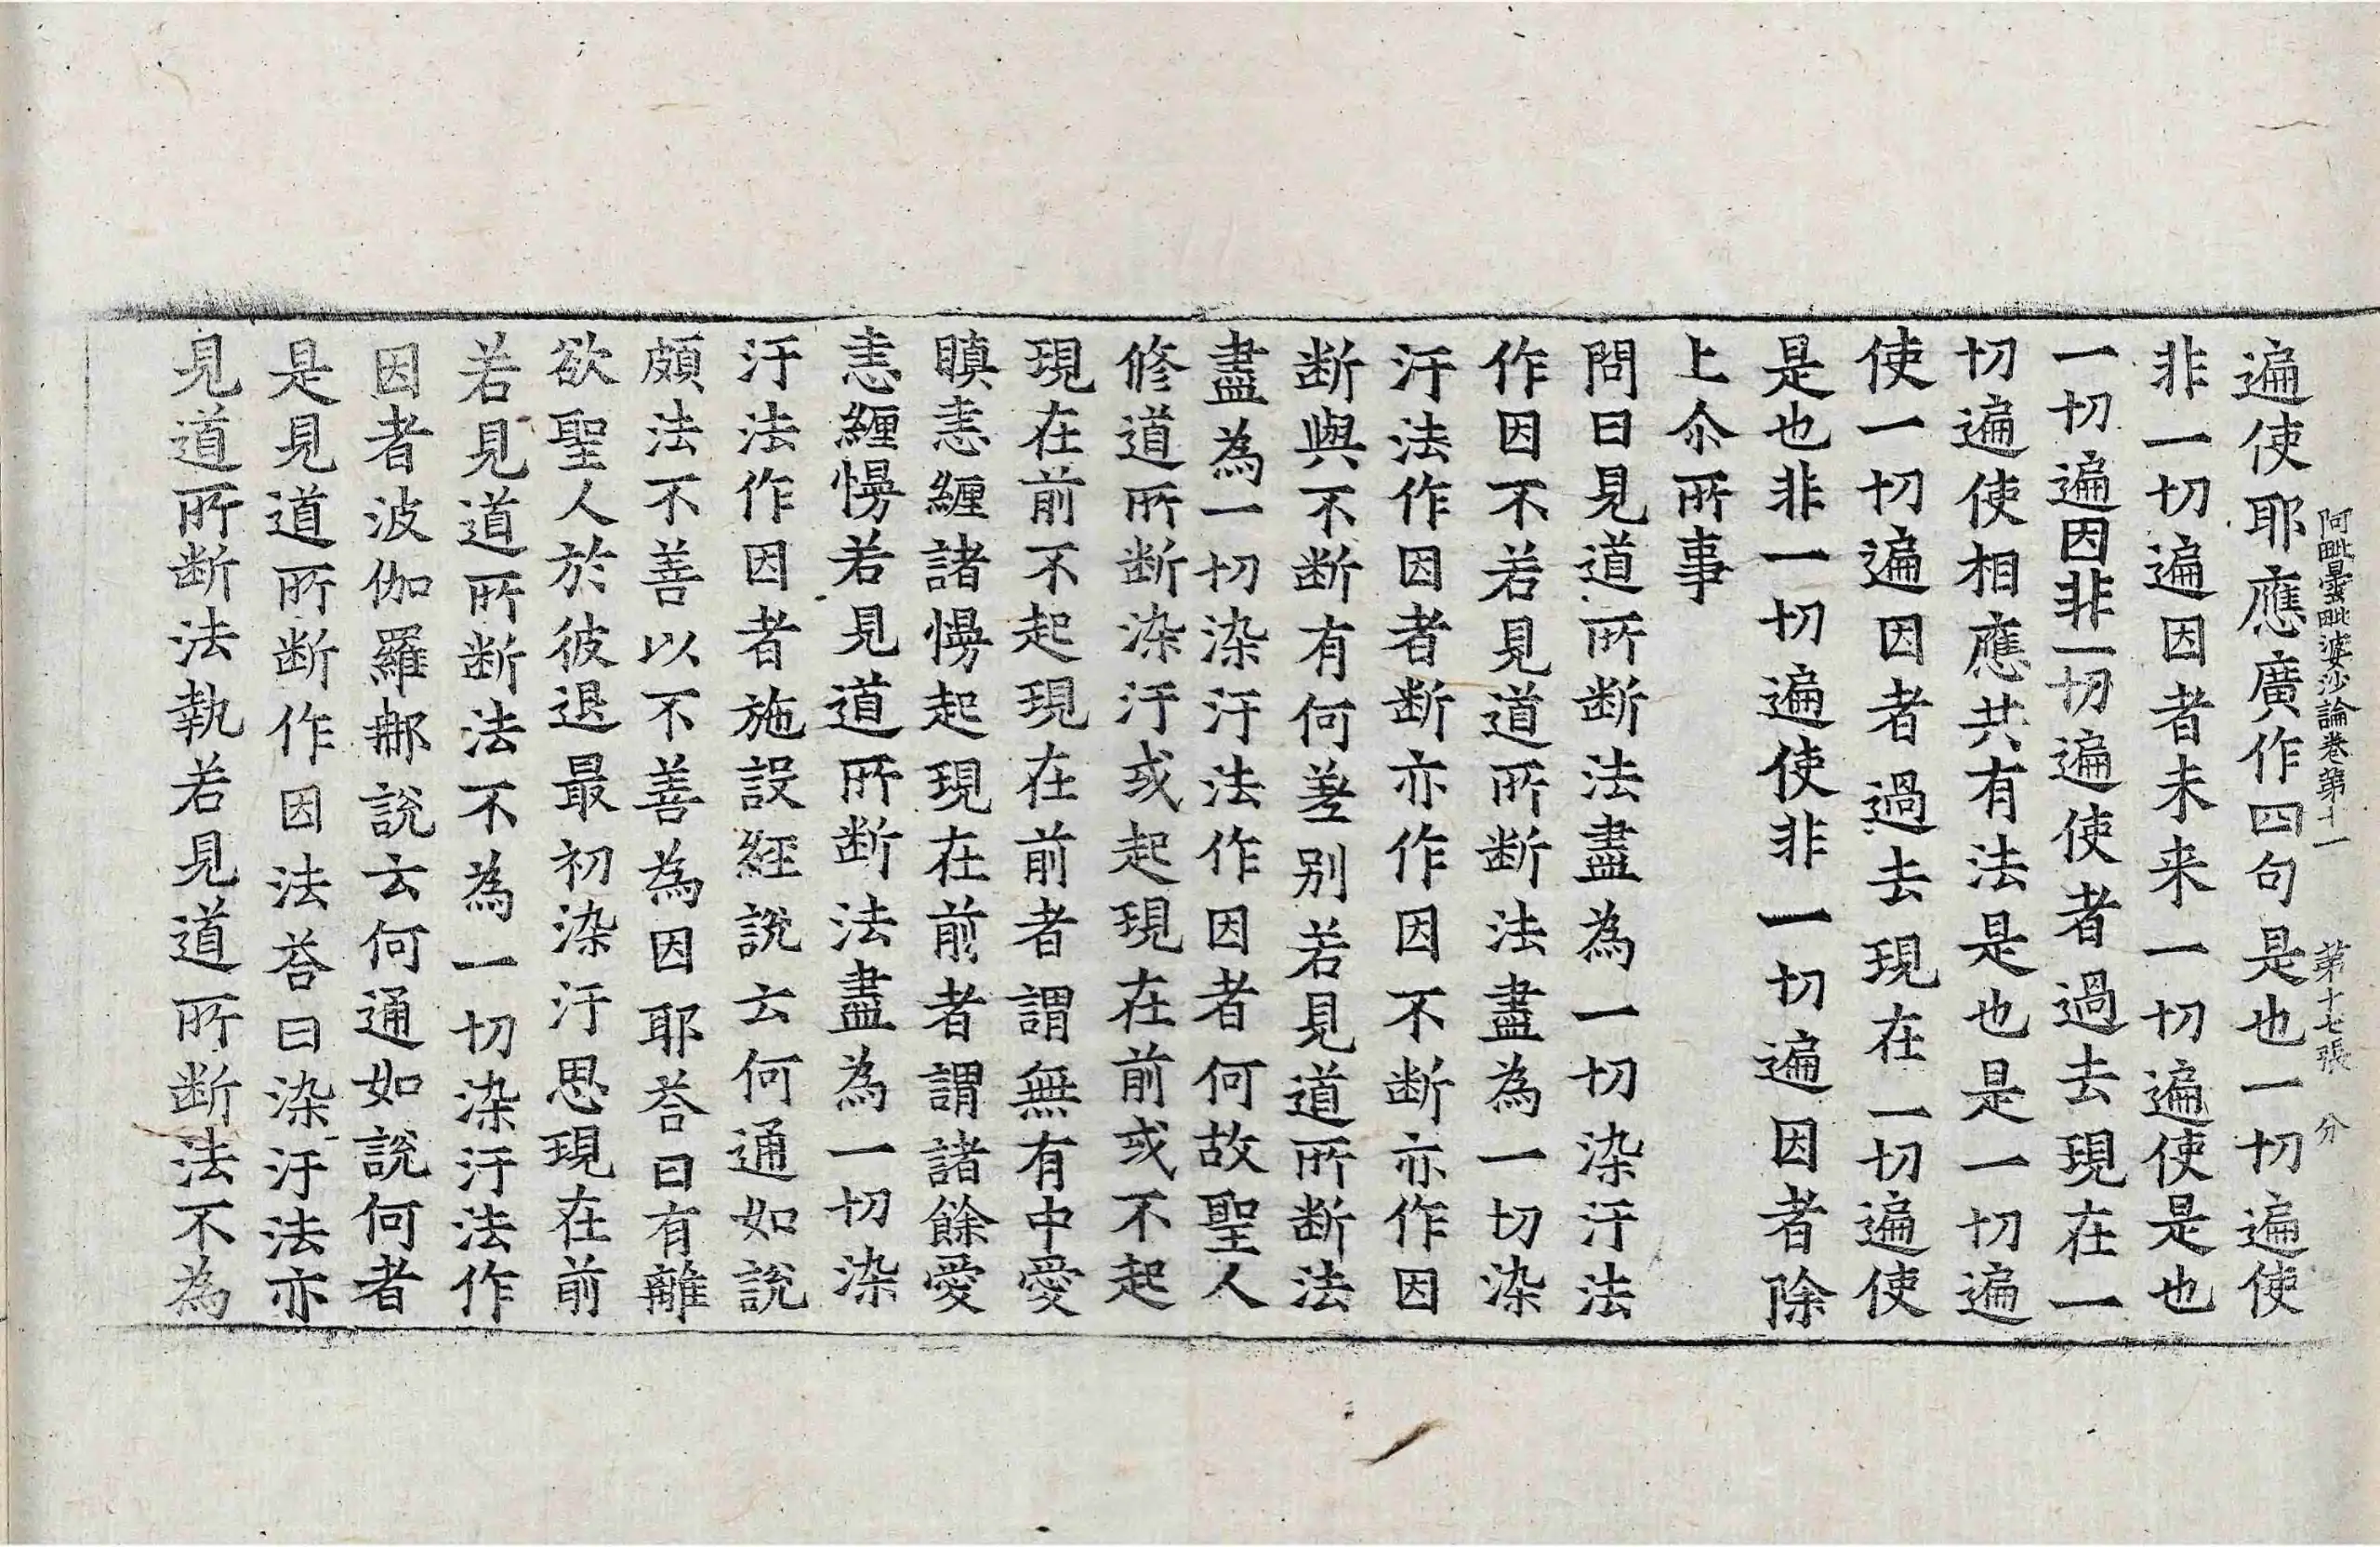 阿毗曇毗婆沙論卷第十一　第十七張　分
遍使耶應廣作四句是也一切遍使
非一切遍因者未来一切遍使是也
一切遍因非一切遍使者過去現在一
切遍使相應共有法是也是一切遍
使一切遍因者過去現在一切遍使
是也非一切遍使非一切遍因者除
上尒所事
問曰見道所断法盡為一切染汙法
作因不若見道所断法盡為一切染
汙法作因者断亦作因不断亦作因
断與不断有何差别若見道所断法
盡為一切染汙法作因者何故聖人
修道所断染汙或起現在前或不起
現在前不起現在前者謂無有中愛
瞋恚纏諸慢起現在前者謂諸餘愛
恚纏慢若見道所断法盡為一切染
汙法作因者施設経說云何通如說
頗法不善以不善為因耶荅曰有離
欲聖人於彼退最初染汙思現在前
若見道所断法不為一切染汙法作
因者波伽羅那說云何通如說何者
是見道所断作因法荅曰染汙法亦
見道所断法執若見道所断法不為